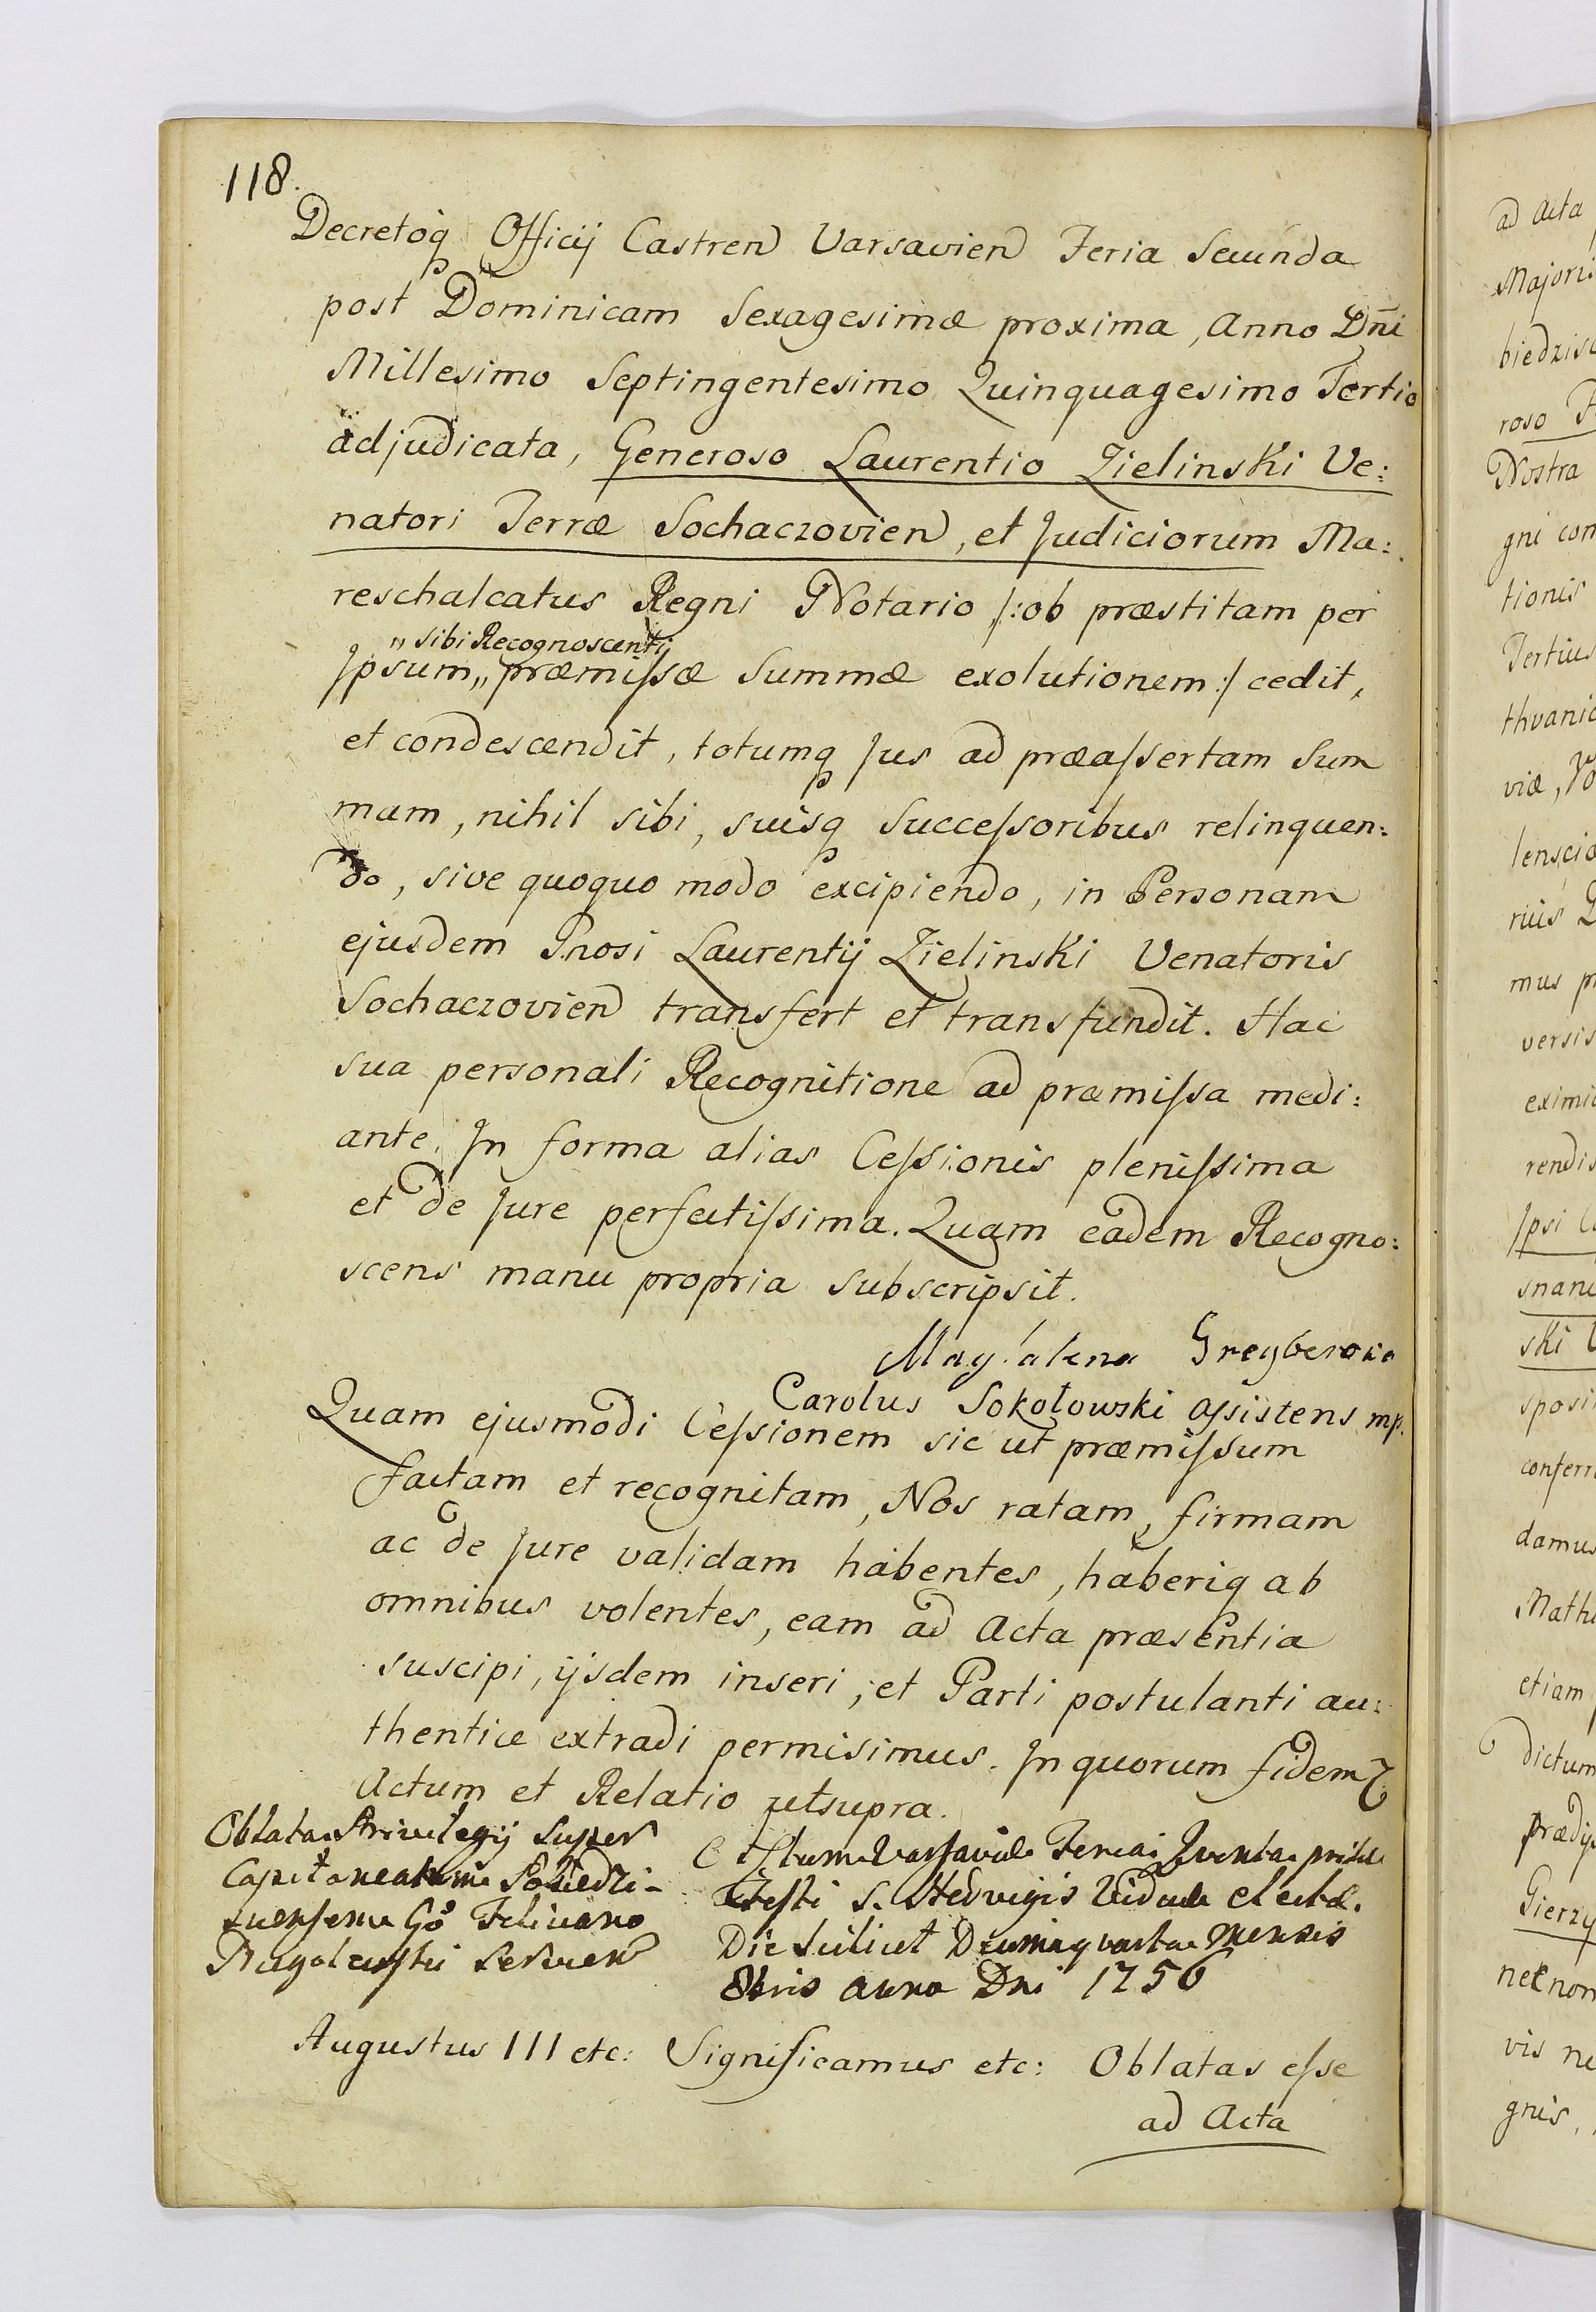 118.
Decretoq Officij Castren Varsavien Feria Secunda
post Dominicam Sexagesimæ proxima, Anno Dñi
Millesimo Septingentesimo Quinquagesimo Tertio
adjudicata, Generoso Laurentio Zielinski Ve:
natori Terræ Sochaczovien, et Judiciorum Ma:
reschalcatus Regni Notario /:ob præstitam per
„ sibi Recognoscenti
Ipsum„ præmissæ Summæ exolutionem:/ cedit,
et condescendit, totumq Jus ad præassertam Sum
mam, nihil sibi, suisq Successoribus relinquen:
do, sive quoquo modo excipiendo, in Personam
ejusdem Gnosi Laurentij Zielinski Venatoris
Sochaczovien transfert et transfundit. Hac
sua personali Recognitione ad præmissa medi:
ante. In forma alias Cessionis plenissima
et de Jure perfectissima. Quam eadem Recogno:
scens manu propria subscripsit.
Magdalena Greyberowa
Carolus Sokołowski assistens mp.
Quam ejusmodi Cessionem sic ut præmissum
factam et recognitam, Nos ratam, firmam
ac de Jure validam habentes, haberiq ab
omnibus volentes, eam ad Acta præsentia
suscipi, ijsdem inseri, et Parti postulanti au:
thentice extradi permisimus. In quorum fidem
Actum et Relatio utsupra.
Oblata Privilegij Super
Capitaneatum
Go Feliciano
Servien
Actum Varsaviæ Feria Quinta pridie
Festi S. Hedvigis Viduæ Electæ.
Die Scilicet Decima quarta Mensis
8bris anno Dni 1756
Augustus III etc: Significamus etc: Oblatas esse
ad Acta
ad Acta
Majori
biedzisc
roso
Nostra
gni con
tionis
Tertius
thvanic
viæ,
lenscia
rius
mus
versis
eximi
rendis
Ipsi
snani
ski
sposi
conferr
damus
Math
etiam
dictum
prædi
Gierzy
necnon
vis
gnis,